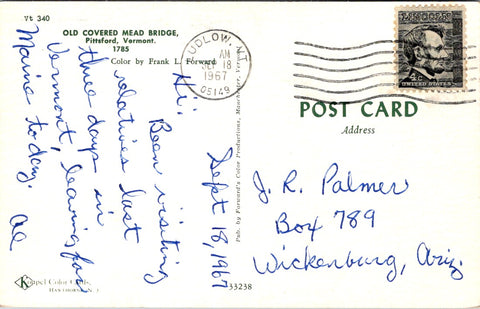 Vt 340
OLD COVERED MEAD BRIDGE,
Pittsford, Vermont.
1785
Color by Frank L. Forward
Sept 18, 1967
Hi.
Been visiting
relatives last
three days in
Vermont, leaving for
Maine today.
al
LUDLOW, VT.
AM
SEP 18
1967
05149
LINCOLN
4c
UNITED STATES
POST CARD
Address
J. R. Palmer
Box 789
Wickenburg, Ariz.
Pub. by Forward's Color Productions, Manchester, Vermont
Koppel Color Cards
HAWTHORNE, N. J.
33238